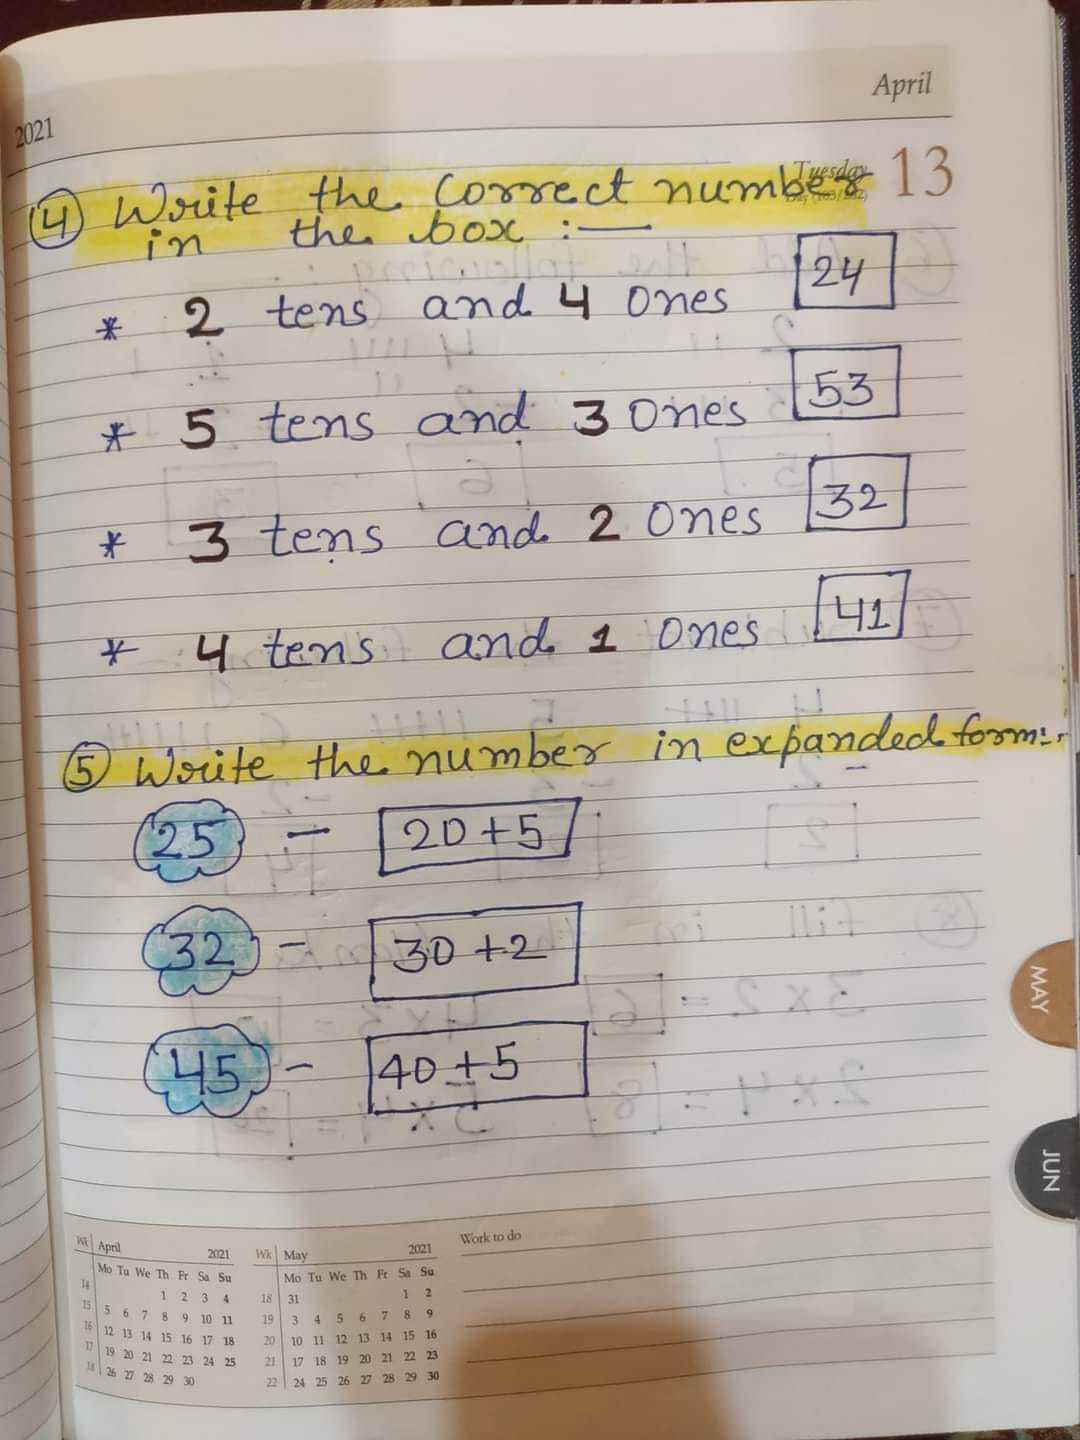 April
2021
Tuesday 13
④ Write the Correct number
in the box :—
* 2 tens and 4 Ones 24
* 5 tens and 3 Ones 53
* 3 tens and 2 Ones 32
* 4 tens and 1 Ones 41
⑤ Write the number in expanded form:-
25 - 20+5
32 - 30+2
45 - 40+5
MAY
JUN
Wk April 2021
Mo Tu We Th Fr Sa Su
14 1 2 3 4
15 5 6 7 8 9 10 11
16 12 13 14 15 16 17 18
17 19 20 21 22 23 24 25
18 26 27 28 29 30
Wk May 2021
Mo Tu We Th Fr Sa Su
18 31 1 2
19 3 4 5 6 7 8 9
20 10 11 12 13 14 15 16
21 17 18 19 20 21 22 23
22 24 25 26 27 28 29 30
Work to do